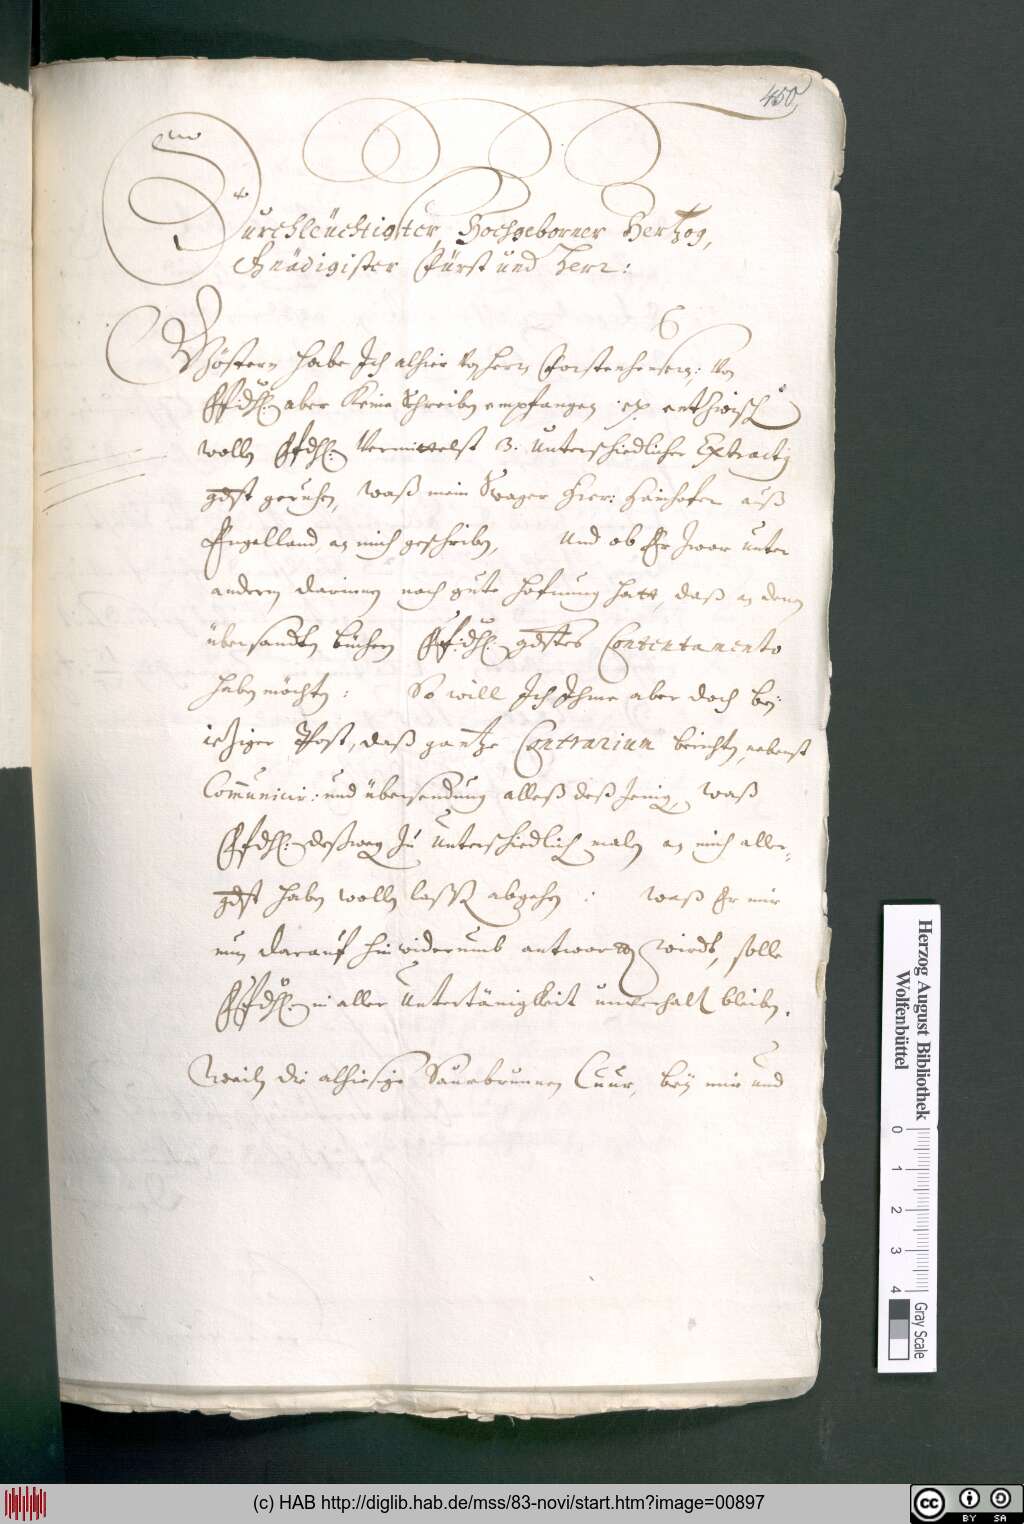 450.
Durchleüchtigster, Hochgeborner Hertzog,
Gnädigister Fürst und Herr:
Göstern habe Ich alhier Herrn Forstenhensern: Von
EfDhl: aber Keine Schreiben empfangen
wollen EfDhl: Vermittelst 3. Unterschiedlicher Extractn
gdst geruhen, waß mein Swager Herr: Hainhofer auß
Engelland an mich geschriben, Und ob Er zwar unter
anderm darinnen noch gute hofnung hatt, daß an denen
übersandten büchern EfDhl: gdstes Contentamento
haben möchten: So will Ich Ihme aber doch bey
ietziger Post, daß gantze Contrarium berichten, nebenst
Communicir: und übersendung alleß deß jenig, waß
EfDhl: deßweg zu Unterschiedlich malen an mich aller-
gdst haben wollen lassen abgehen: waß Er mir
nun darauf hinwiderumb antworten wirdt, solle
EfDhl: in aller Untertänigkeit unverhalten bleiben.
Weiln die alhiesige Saurbrunnen Cuur, bey mir und
Herzog August Bibliothek
Wolfenbüttel
0 1 2 3 4
Gray Scale
(c) HAB http://diglib.hab.de/mss/83-novi/start.htm?image=00897
cc BY SA